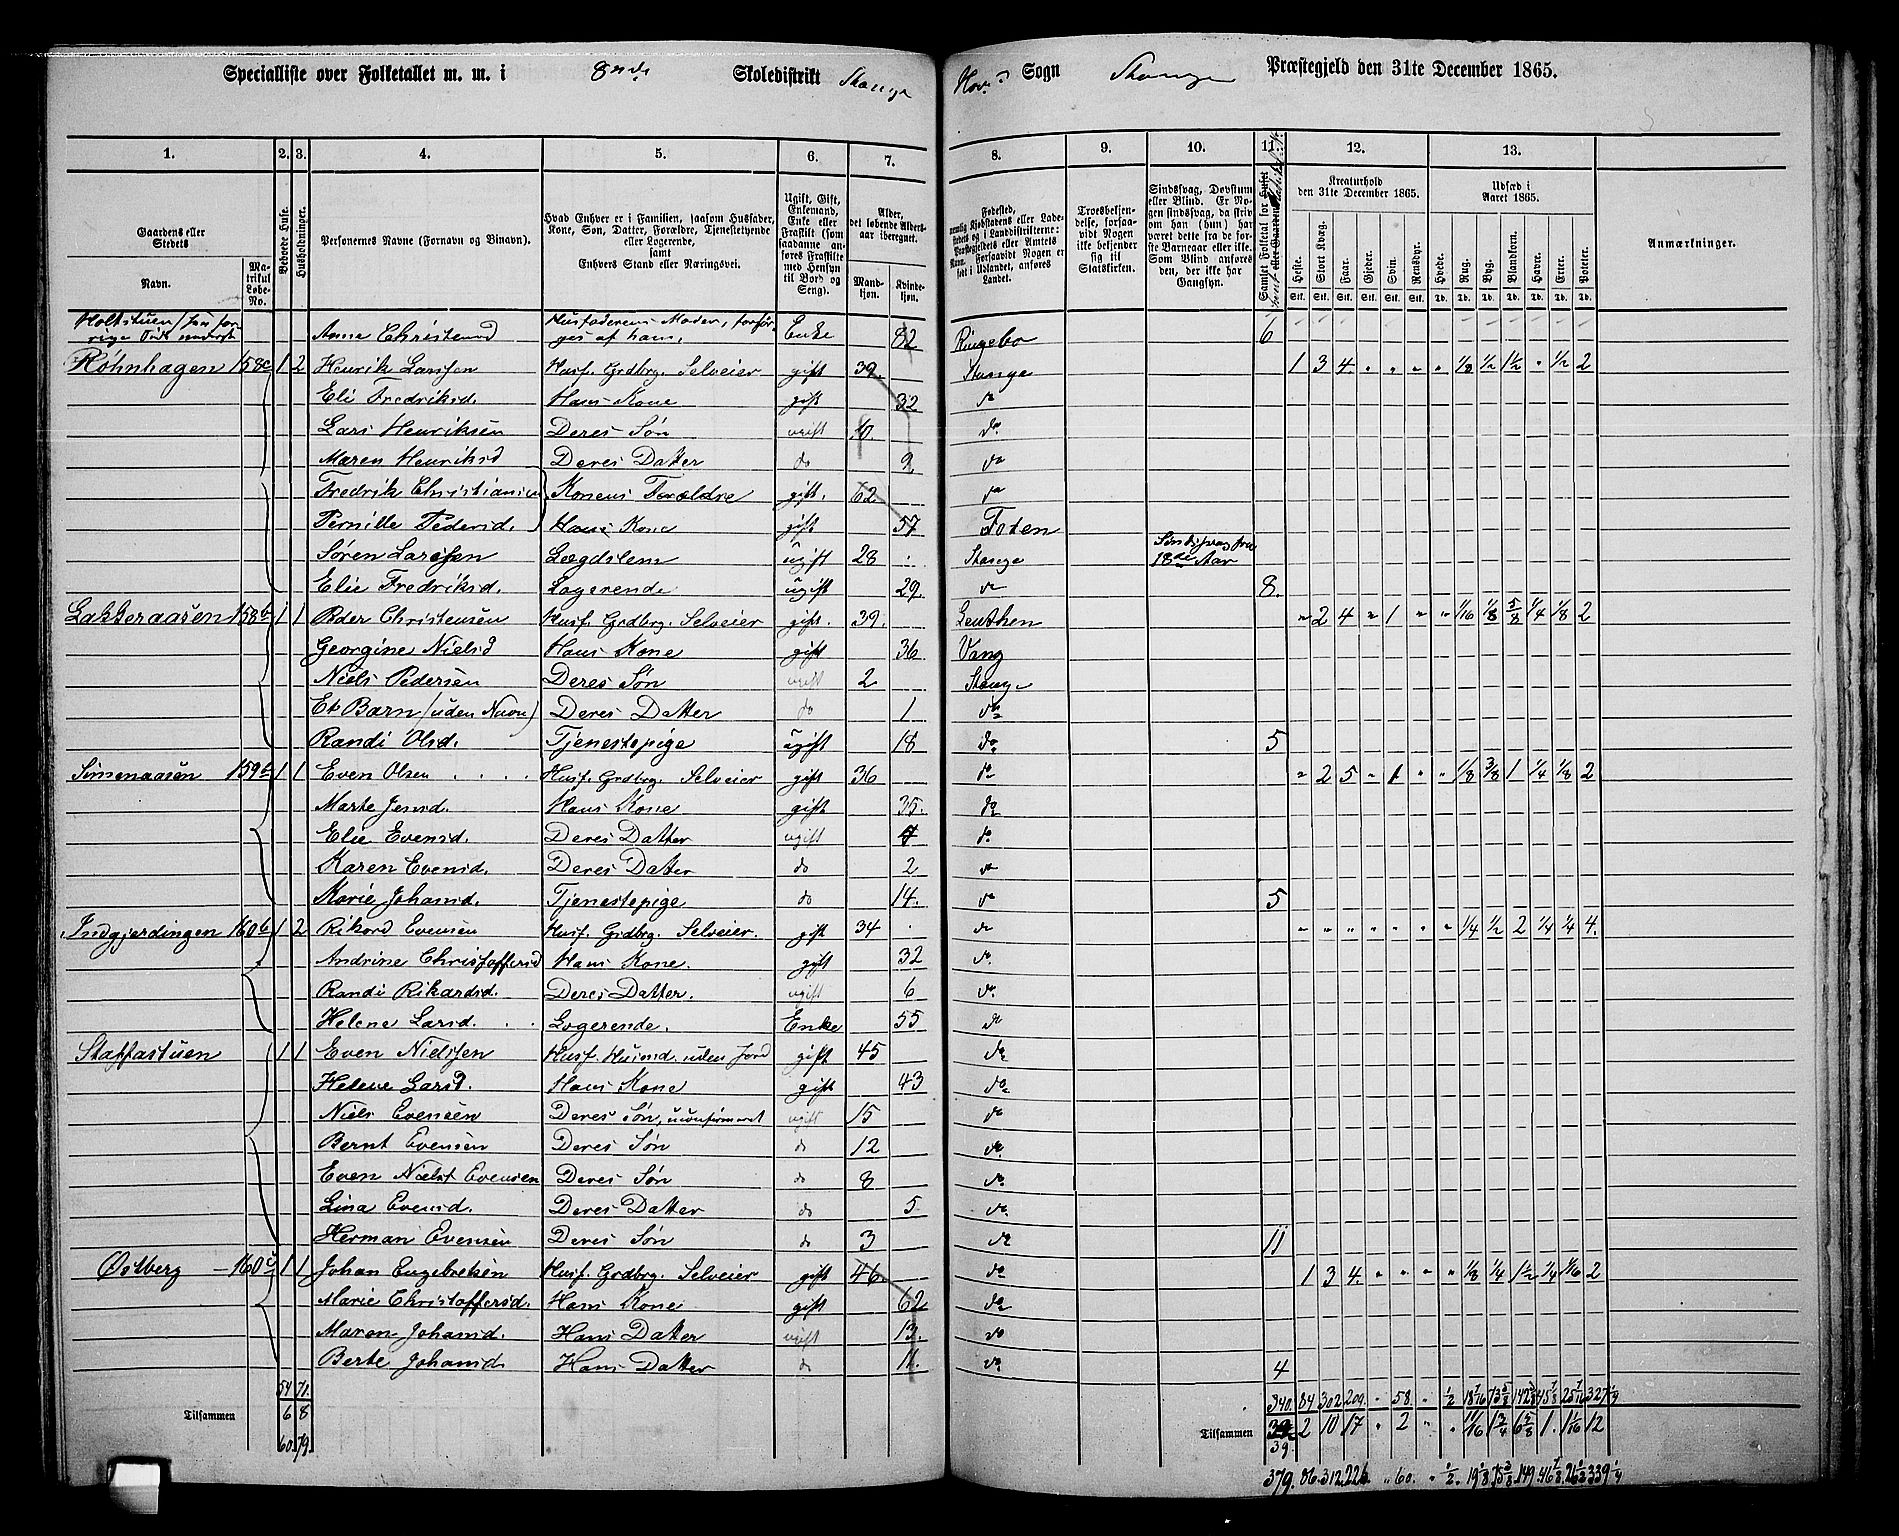 Specialliste over Folketallet m. m. i 8nde Skoledistrikt Stange Sogn Stange Præstegjeld den 31te December 1865.
1. 2. 3. 4. 5. 6. 7. 8. 9. 10. 11. 12. 13.
Gaardens eller Stedets
Navn. Matrikul Løbe-No.
Bebøde Huse.
Husholdninger.
Personernes Navne (Fornavn og Binavn).
Hvad Enhver er i Familien, saasom Husfader, Kone, Søn, Datter, Forældre, Tjenestetyende eller Logerende, samt Enhvers Stand eller Næringsvei.
Ugift, Gift, Enkemand, Enke eller Fraskilt (som saadanne anføres Fraskilte med Hensyn til Bord og Seng).
Alder, det løbende Aldersaar iberegnet.
Mandkjøn. Kvindekjøn.
Fødested,
Troesbekjendelse, forsaavidt Nogen ikke bekjender sig til Statskirken.
Sindssvag, Døvstum eller Blind. Er Nogen sindssvag, da skriv om han (hun) har været dette fra de første Barneaar eller ikke. Som Blind anføres den, der ikke har Gangsyn.
Kreaturhold den 31te December 1865.
Heste. Stort Kvæg. Faar. Gjeder. Svin. Rensdyr.
Udsæd i Aaret 1865.
Hvede. Rug. Byg. Blandkorn. Havre. Erter. Poteter.
Anmærkninger.
Anne Christensd Husfaderens Moder, forsørges af ham. Enke 82 Ringebo 6
Røhnhagen 158c 1 2 Henrik Larssen Husf. Grdbrg. Selveier gift 39 Stange 1 3 4 " " " " 1/8 1/2 1 1/2 " 1/2 2
Eli Fredriksd. Hans Kone gift 32 do
Lars Henriksen Deres Søn ugift 10. do
Maren Henriksd Deres Datter do 9 do
Fredrik Christiansen Konens Forældre gift. 62 do
Pernille Pedersd. Hans Kone gift 57 Toten
Søren Larssen Lægdslem ugift 28 Stange Sindssvag fra 18de Aar
Elie Fredriksd. Logerende ugift 29. do 8.
Lakkeraasen 158b 1 1 Peder Christensen Husf. Grdbrg. Selveier gift. 39. Leuthen " 2 4 " 1 " " 1/16 1/8 5/8 1/4 1/8 2
Georgine Nielsd Hans Kone gift 36 Vang
Niels Pedersen Deres Søn ugift 2 Stange
Et Barn (uden Navn) Deres Datter do 1 do
Randi Olsd. Tjenestepige ugift 18 do 5
Simenaasen 159 1 1 Even Olsen Husf. Grdbrg. Selveier gift 36 do " 2 5 " 1 " " 1/8 3/8 1 1/4 1/8 2
Marte Jensd. Hans Kone gift 35. do
Elie Evensd. Deres Datter ugift do
Karen Evensd. Deres Datter do 2 do
Marie Johansd. Tjenestepige do 14. do 5
Indgjerdingen 160b 1 2 Rikard Evensen Husf. Grdbrg. Selveier. gift 34 do " " " " " " " 1/4 1/2 2 1/4 1/4 4.
Andrine Christoffersd Hans Kone. gift 32 do
Randi Rikardsd. Deres Datter. ugift 6 do
Helene Larsd. Logerende. Enke 55 do
Staffastuen 1 1 Even Nielssen Husf. Husmd. uden Jord gift 45 do
Helene Larsd. Hans Kone gift 43 do
Niels Evensen Deres Søn, ukonfirmeret ugift 15 do
Bernt Evensen Deres Søn do 12 do
Even Nielst Evensen Deres Søn do 8 do
Lina Evensd. Deres Datter do 5 do
Herman Evensen Deres Søn do 3 do 11
Ostberg 160c 1 1 Johan Engebretsen Husf. Grdbrg. Selveier gift 46 do 1 3 4. " " " " 1/8 1/4 1 1/2 1/4 1/16 2
Marie Christoffersd. Hans Kone gift 62 do
Maren Johansd. Hans Datter ugift 13. do
Berte Johansd Hans Datter do 11. do 4
54 71. 340. 84 302 209. " 58. " 1/2
Tilsammen 6 8 Tilsammen 39. 2 10 17 " 2 " " 11/16 1 3/4 6 5/8 1. 1 1/16 12
60. 79. 379. 86. 312 226. " 60. " 1/2. 19 1/8 75 3/8 149. 46 7/8 339 1/4